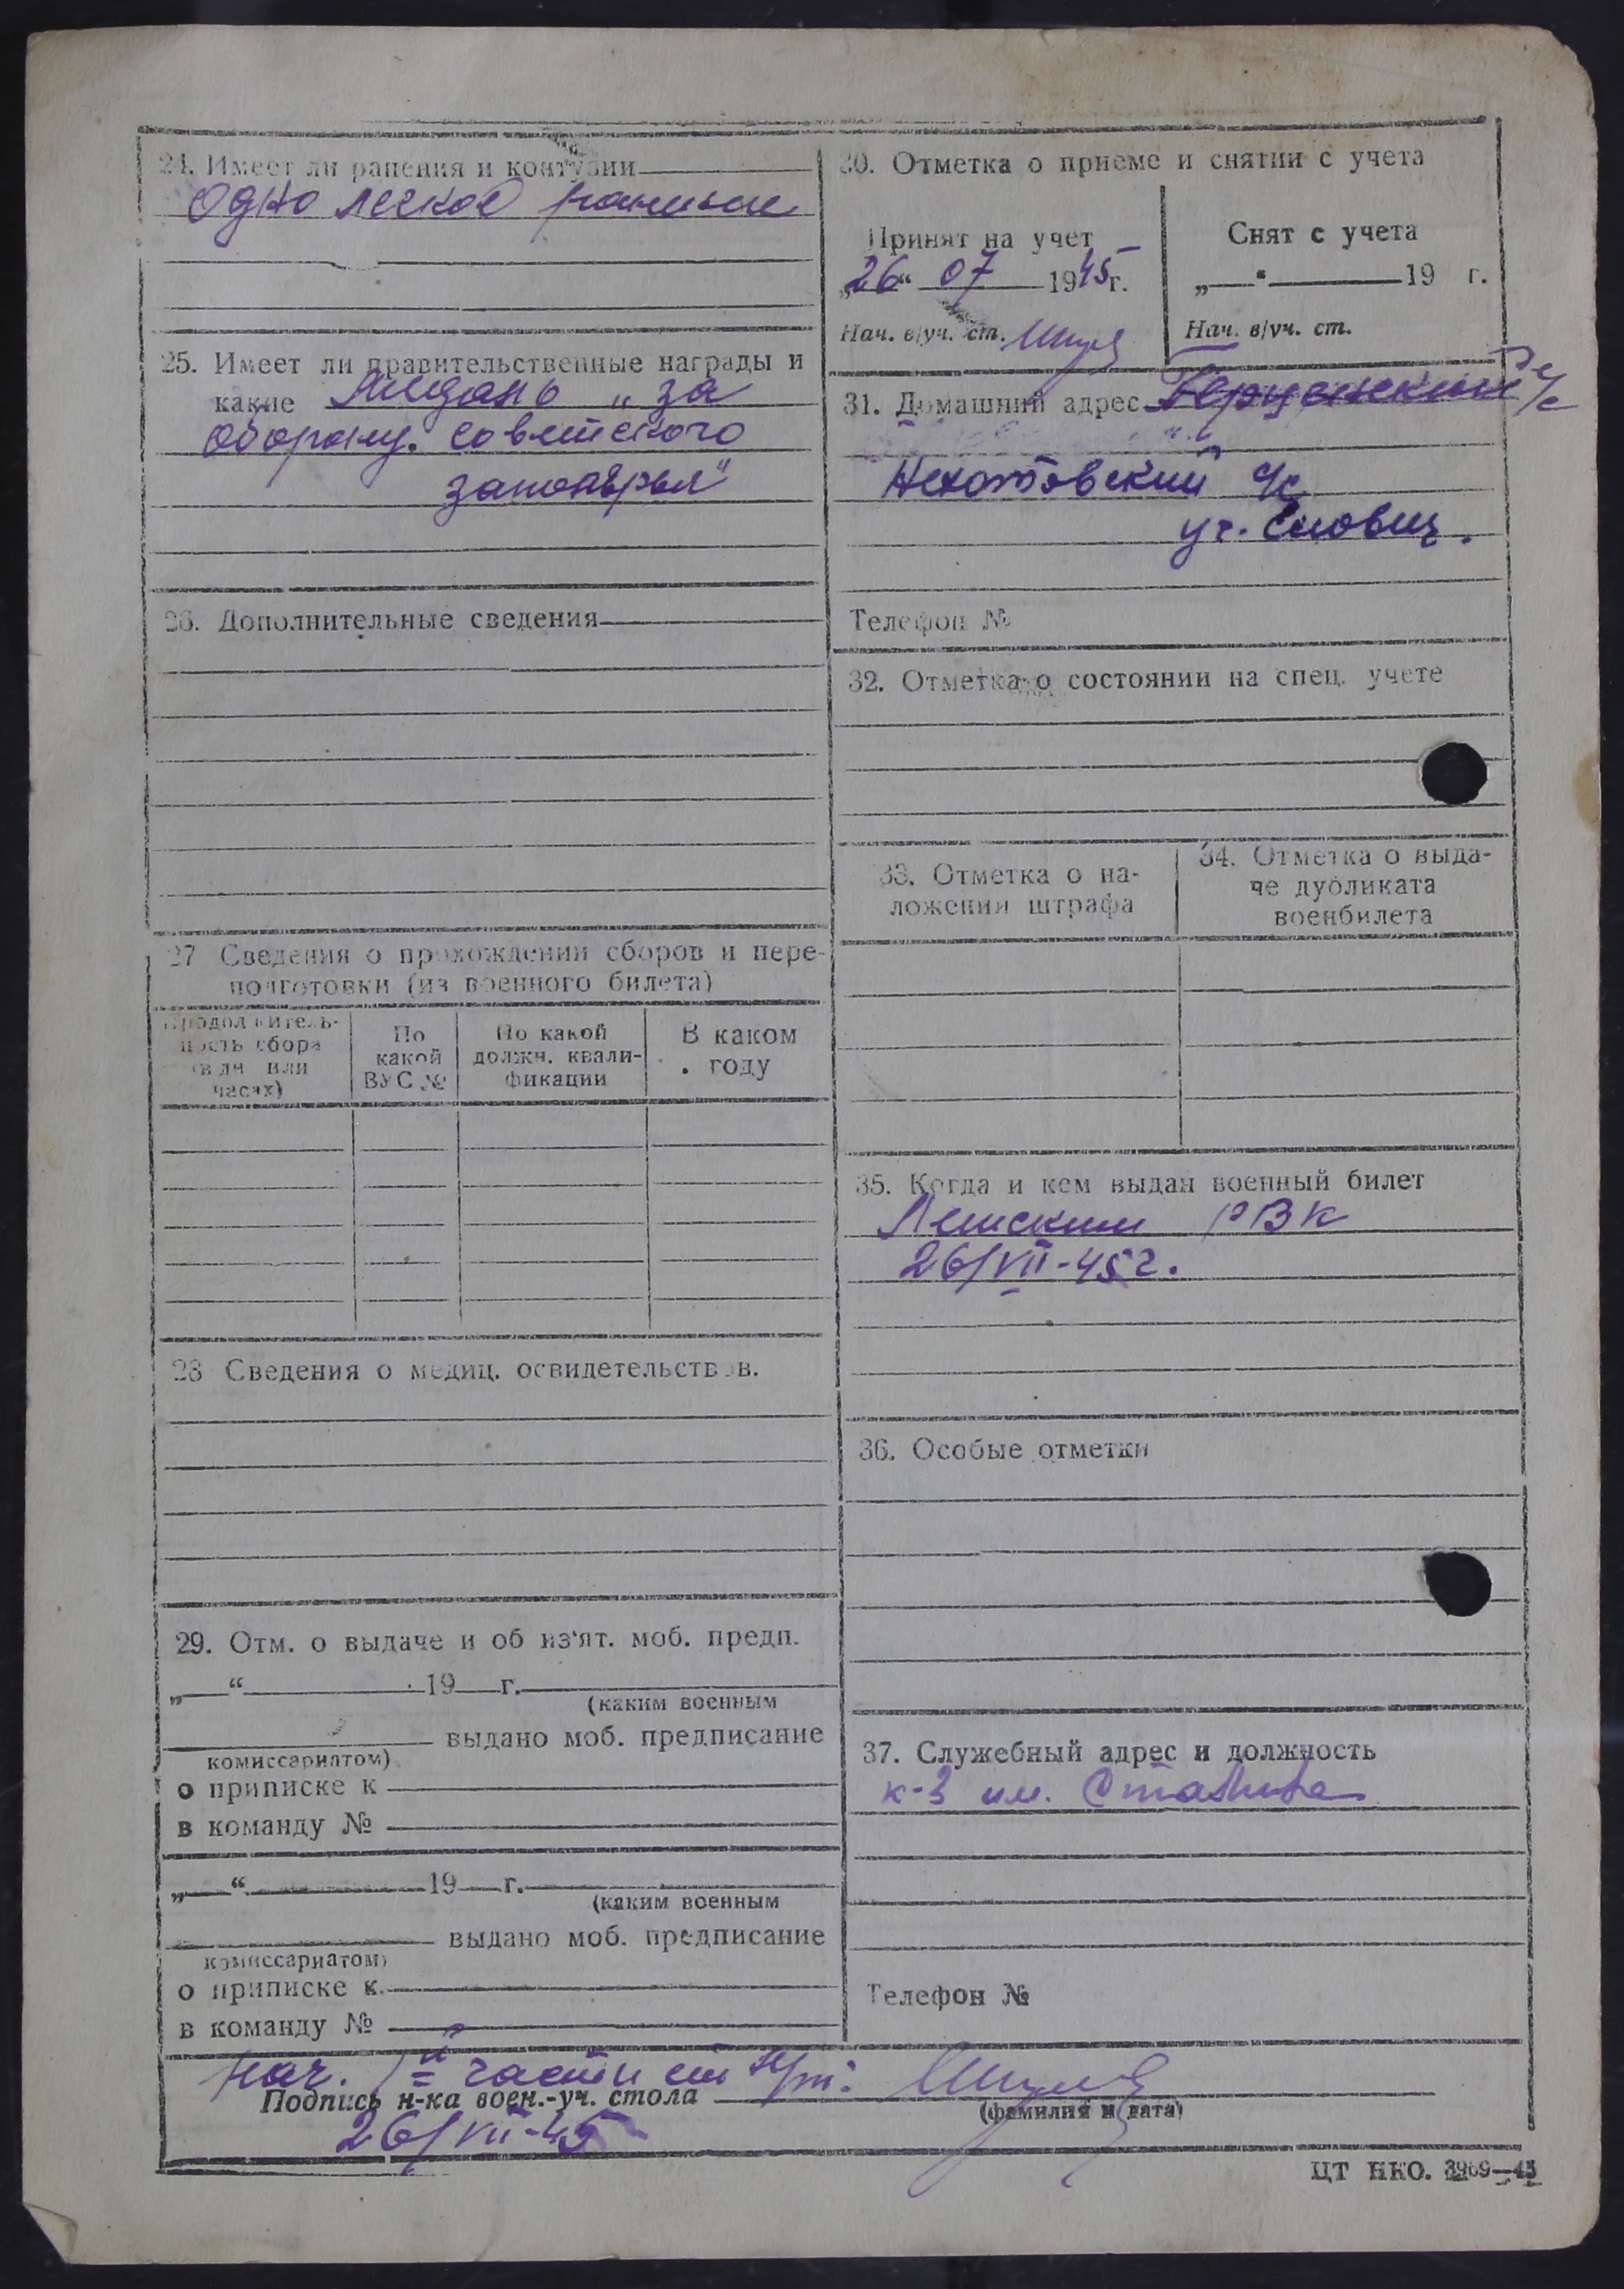 24. Имеет ли ранения и контузии
Одно легкое ранение
25. Имеет ли правительственные награды и
какие Медаль „за
оборону советского
заполярья"
26. Дополнительные сведения
27 Сведения о прохождении сборов и пере-
подготовки (из военного билета)
Продолжитель-
ность сбора
(в дн. или
часах)
По
какой
ВУС №
По какой
должн. квали-
фикации
В каком
году
28 Сведения о медиц. освидетельствов.
29. Отм. о выдаче и об из'ят. моб. предп.
„ “ 19 г.
(каким военным
выдано моб. предписание
комиссариатом)
о приписке к
в команду №
„ “ 19 г.
(каким военным
выдано моб. предписание
комиссариатом)
о приписке к
в команду №
30. Отметка о приеме и снятии с учета
Принят на учет
„26“ 07 1945г.
Нач. в/уч. ст.
Снят с учета
„ “ 19 г.
Нач. в/уч. ст.
31. Домашний адрес
с/с
уч.
Телефон №
32. Отметка о состоянии на спец. учете
33. Отметка о на-
ложении штрафа
34. Отметка о выда-
че дубликата
военбилета
35. Когда и кем выдан военный билет
Ленским РВК
26/VII-45г.
36. Особые отметки
37. Служебный адрес и должность
к-з им. Сталина
Телефон №
Нач. 1=й части
Подпись н-ка воен.-уч. стола
(фамилия и дата)
26/VII-45
ЦТ НКО. 3969—45